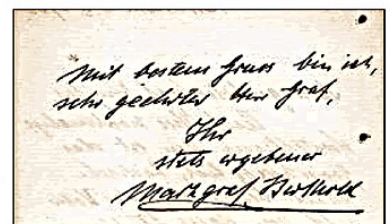 Mit bestem Gruss bin ich,
sehr geehrter Herr Graf,
Ihr
stets ergebener
Markgraf Berthold